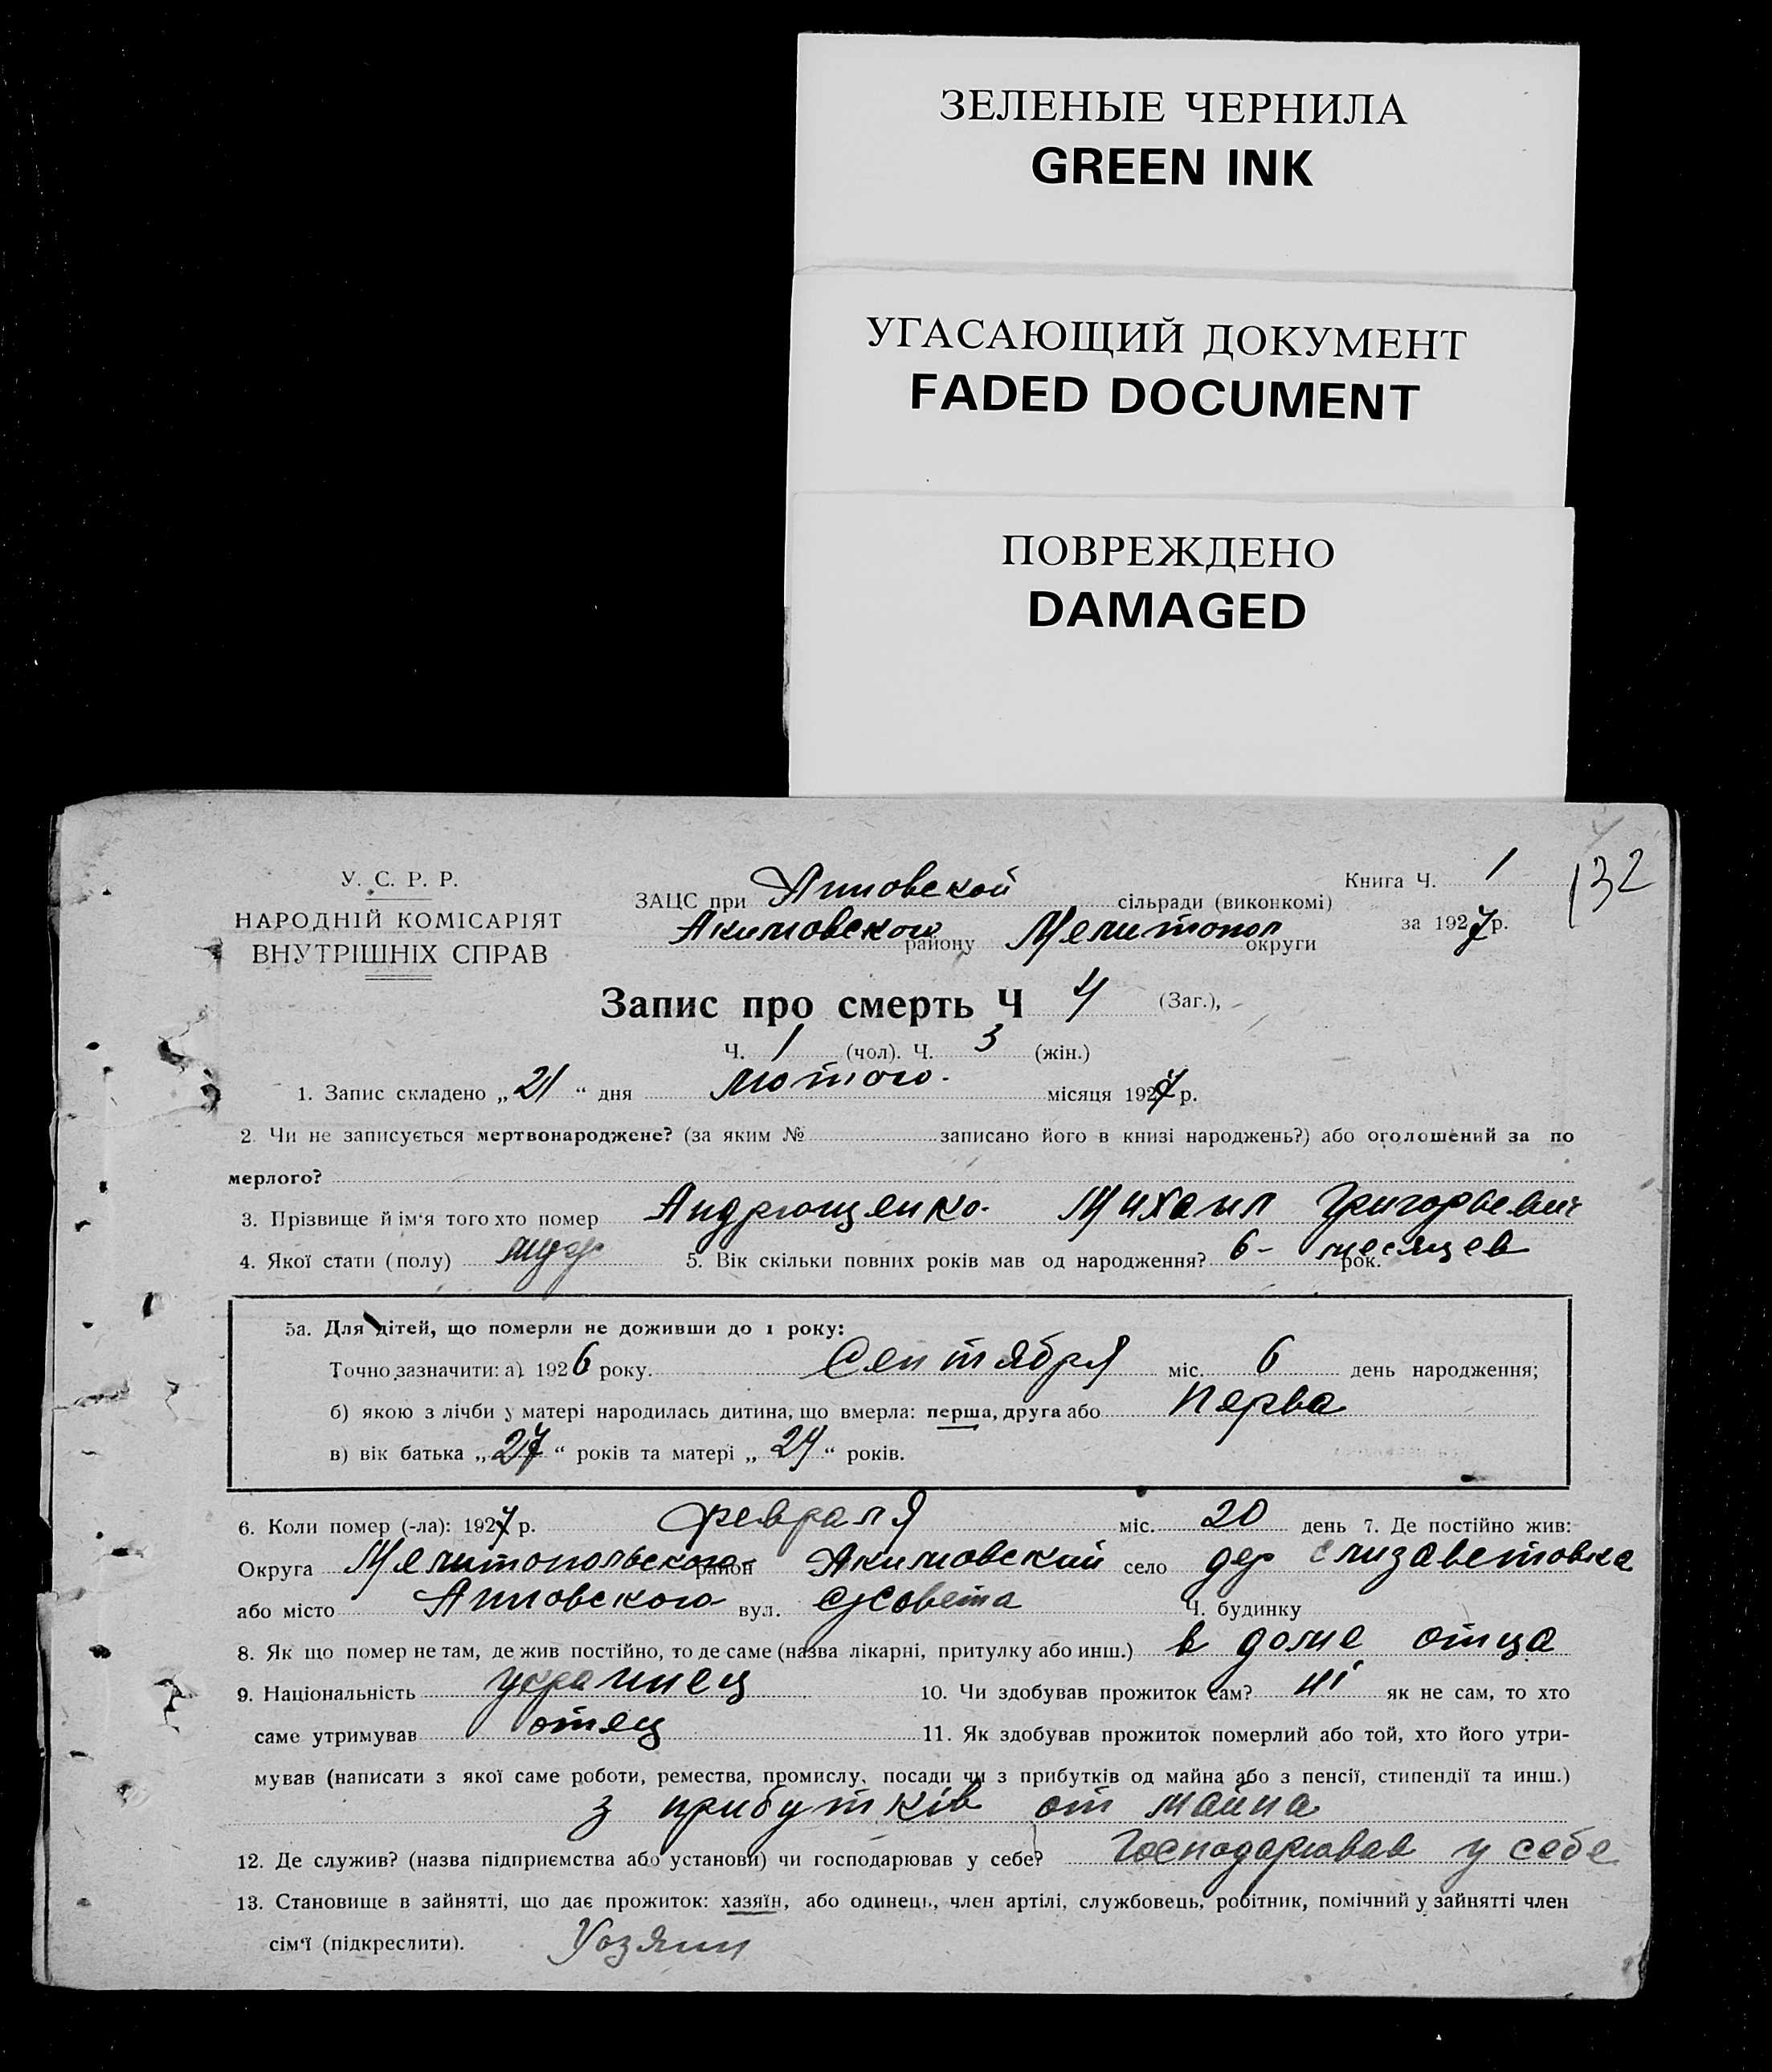 ЗЕЛЕНЫЕ ЧЕРНИЛА
GREEN INK
УГАСАЮЩИЙ ДОКУМЕНТ
FADED DOCUMENT
ПОВРЕЖДЕНО
DAMAGED
У. С. Р. Р.
НАРОДНІЙ КОМІСАРІЯТ
ВНУТРІШНІХ СПРАВ
ЗАЦС при сільради (виконкомі)
Акимовского району Мелитопол округи
Книга Ч. 1
132
за 1927 р.
Запис про смерть Ч 4 (Заг.),
Ч. 1 (чол). Ч. 3 (жін.)
1. Запис складено „21“ дня лютого. місяця 1927 р.
2. Чи не записується мертвонароджене? (за яким № записано його в книзі народжень?) або оголошений за по
мерлого?
3. Прізвище й ім'я того хто помер Андрющенко. Михаил Григорьевич
4. Якої стати (полу) муж 5. Вік скільки повних років мав од народження? 6 - рок. месяцев
5а. Для дітей, що померли не доживши до 1 року:
Точно зазначити: а) 1926 року. Сентября міс. 6 день народження;
б) якою з лічби у матері народилась дитина, що вмерла: перша, друга або перва
в) вік батька „27“ років та матері „24“ років.
6. Коли помер (-ла): 1927 р. февраля міс. 20 день 7. Де постійно жив:
Округа Мелитопольского район Акимовский село дер Елизаветовка
або місто вул. с/совета Ч. будинку
8. Як що помер не там, де жив постійно, то де саме (назва лікарні, притулку або инш.) в доме отца
9. Національність украинец 10. Чи здобував прожиток сам? ні як не сам, то хто
саме утримував отец 11. Як здобував прожиток померлий або той, хто його утри-
мував (написати з якої саме роботи, ремества, промислу, посади чи з прибутків од майна або з пенсії, стипендії та инш.)
з прибутків от майна
12. Де служив? (назва підприємства або установи) чи господарював у себе? Господарював у себе
13. Становище в зайнятті, що дає прожиток: хазяїн, або одинець, член артілі, службовець, робітник, помічний у зайнятті член
сім'ї (підкреслити). Хозяин